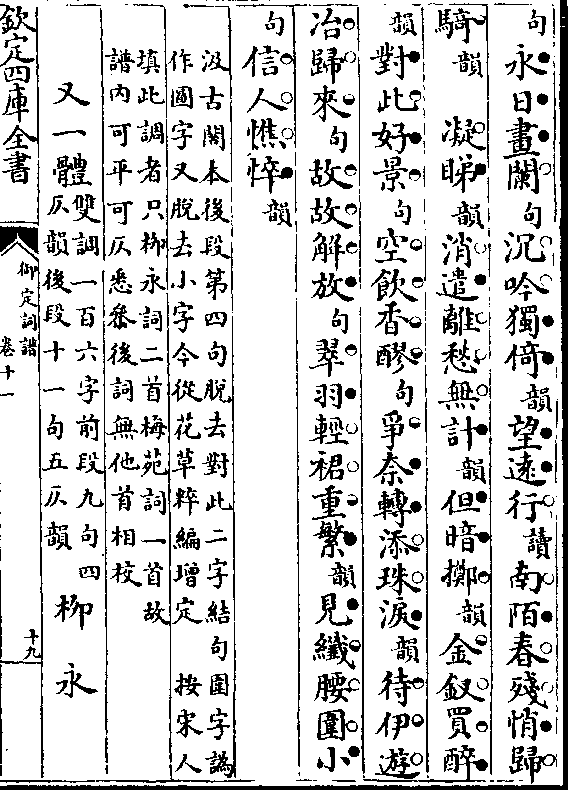 句永日畫闌句沉吟獨倚韻望遠行讀南陌春殘悄歸
騎韻凝睇韻消遣離愁無計韻但暗擲韻金釵買醉
韻對此好景句空飲香醪句爭奈轉添珠淚韻待伊遊
冶歸來句故故解放句翠羽輕裙重繫韻見纖腰圍小
句信人憔悴韻
汲古閣本後段第四句脫去對此二字結句圍字譌
作圖字又脫去小字今從花草粹編增定 按宋人
填此調者只柳永詞二首梅苑詞一首故
譜內可平可仄悉叅後詞無他首相校
又一體
雙調一百六字前段九句四
仄韻後段十一句五仄韻
柳永
欽定四庫全書
御定詞譜
卷十一
十九